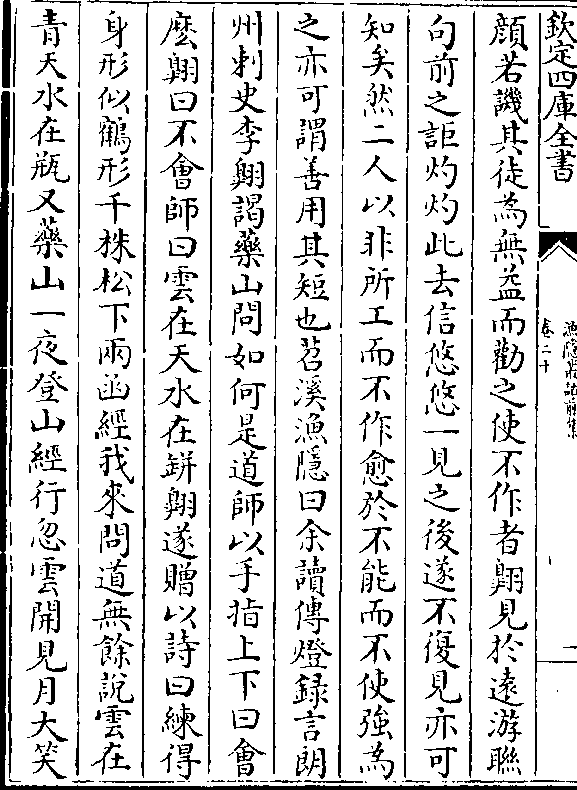 欽定四庫全書
漁隱叢話前集
卷二十
一
顔若譏其徒為無益而勸之使不作者翺見於遠游聯
句前之詎灼灼此去信悠悠一見之後遂不復見亦可
知矣然二人以非所工而不作愈於不能而不使強為
之亦可謂善用其短也苕溪漁隱曰余讀傳燈録言朗
州刺史李翺謁藥山問如何是道師以手指上下曰會
麽翺曰不會師曰雲在天水在缾翺遂贈以詩曰練得
身形似鶴形千株松下兩函經我來問道無餘說雲在
青天水在瓶又藥山一夜登山經行忽雲開見月大笑